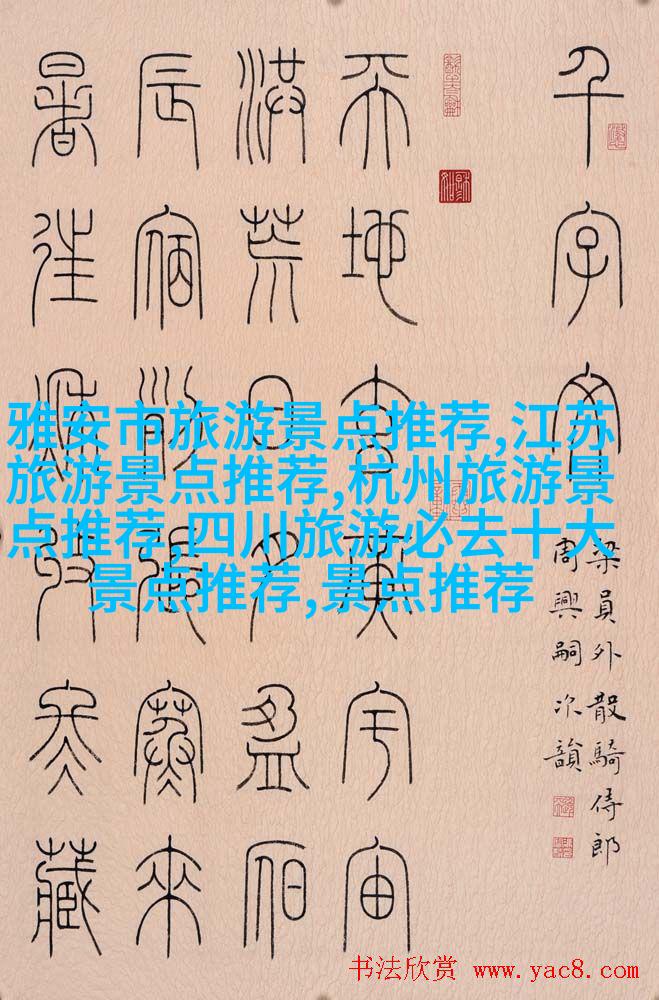 千字文
梁員外散騎侍郎
周興嗣次韻
天地玄黃宇宙
洪荒日月盈昃
辰宿列張寒來
暑往秋收冬藏
雅安市旅游景点推荐,江苏
旅游景点推荐,杭州旅游景
点推荐,四川旅游必去十大
景点推荐,景点推荐
书法欣赏 www.yac8.com